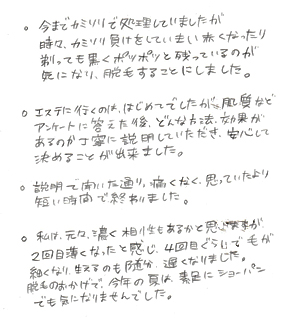 。今までカミソリで処理していましたが
時々、カミソリ負けをしていまい赤くなったり
剃っても黒くポツポツと残っているのが
気になり、脱毛することにしました。
。エステに行くのは、はじめてでしたが、肌質など
アンケートに答えた後、どんな方法、効果が
あるのか丁寧に説明していただき、安心して
決めることが出来ました。
。説明で聞いた通り、痛くなく、思っていたより
短い時間で終わりました。
。私は、元々、濃く 相性もあるかと思いますが
2回目薄くなったと感じ、4回目ぐらいで毛が
細くなり、生えるのも随分、遅くなりました。
脱毛のおかげで、今年の夏は、素足にショーパン
でも気になりませんでした。